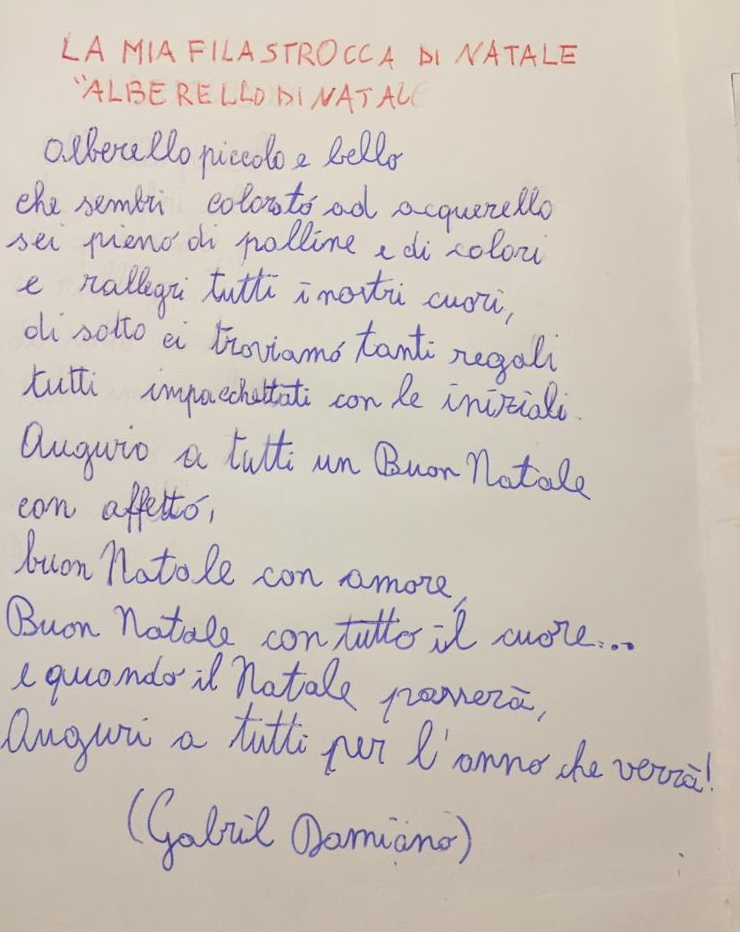 LA MIA FILASTROCCA DI NATALE
"ALBERELLO DI NATALE
Alberello piccolo e bello
che sembri colorato ad acquerello
sei pieno di palline e di colori
e rallegri tutti i nostri cuori,
di sotto ci troviamo tanti regali
tutti impacchettati con le iniziali.
Auguro a tutti un Buon Natale
con affetto,
buon Natale con amore,
Buon Natale con tutto il cuore...
e quando il Natale passerà,
Auguri a tutti per l'anno che verrà!
(Gabril Damiano)